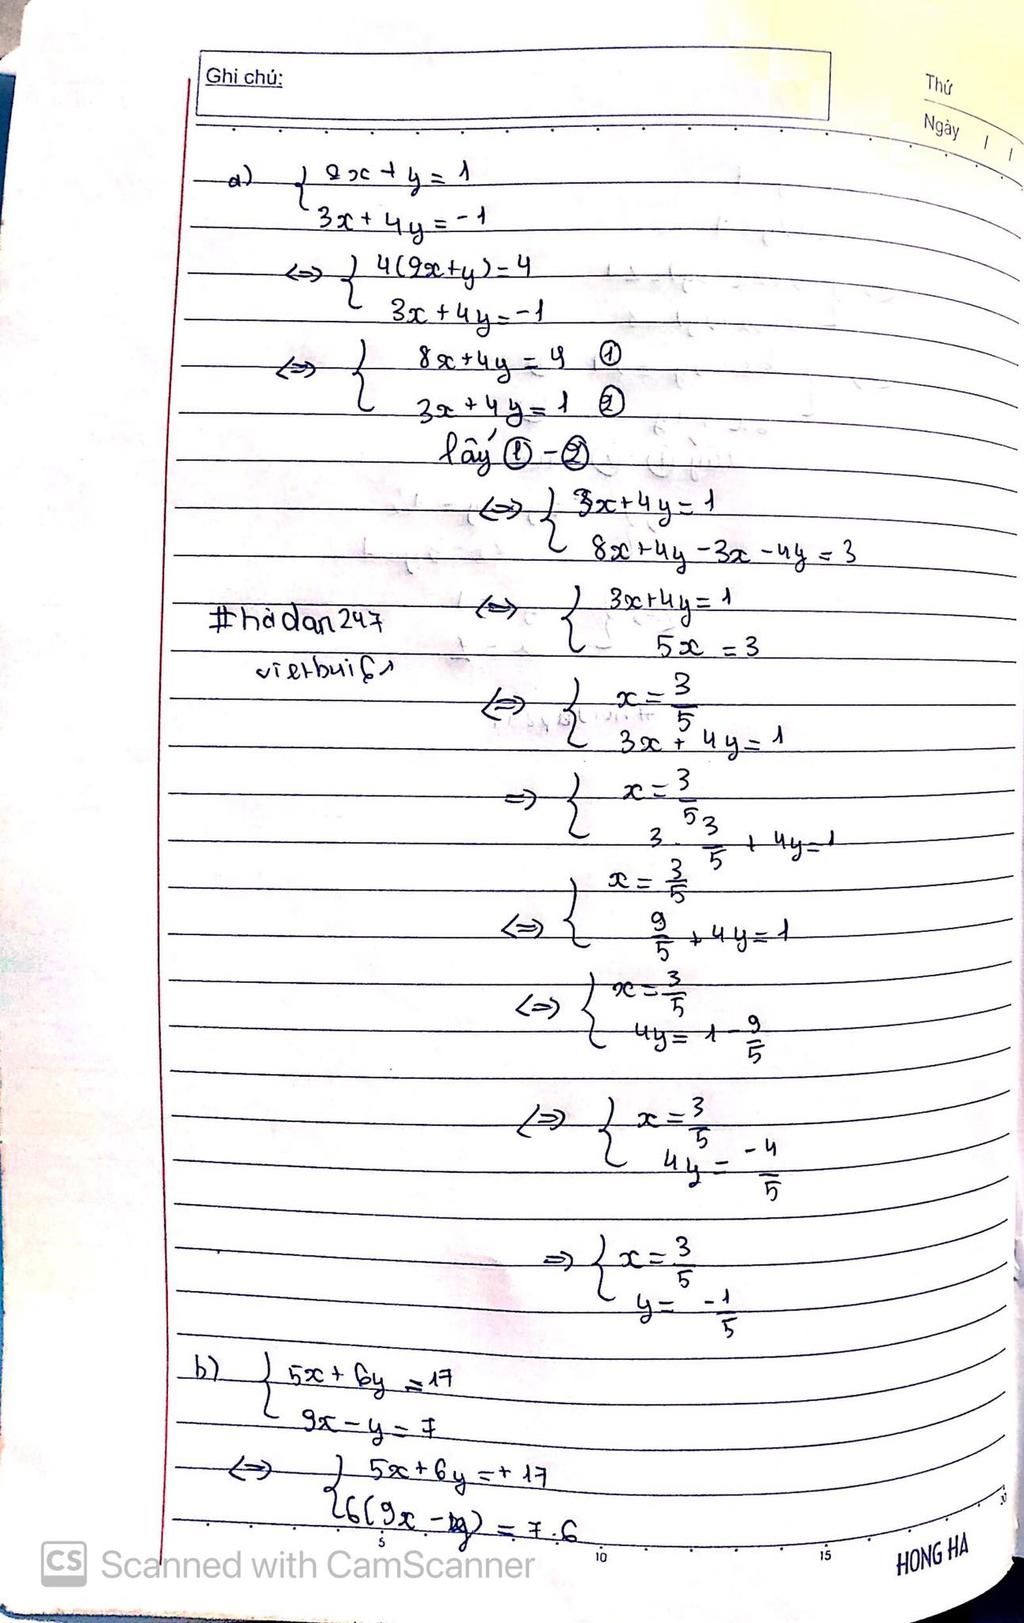 Ghi chú:
Thứ
Ngày / /
a) { 2x + y = 1
3x + 4y = -1
<=> { 4(2x+y) = 4
3x + 4y = -1
<=> { 8x + 4y = 4 ①
3x + 4y = 1 ②
lấy ① - ②
<=> { 3x + 4y = 1
8x + 4y - 3x - 4y = 3
<=> { 3x + 4y = 1
5x = 3
#hàdan247
<=> { x = 3/5
3x + 4y = 1
=> { x = 3/5
3 . 3/5 + 4y = 1
<=> { x = 3/5
9/5 + 4y = 1
<=> { x = 3/5
4y = 1 - 9/5
<=> { x = 3/5
4y = -4/5
=> { x = 3/5
y = -1/5
b) { 5x + 6y = 17
9x - y = 7
<=> { 5x + 6y = + 17
6(9x - y) = 7.6
5 10 15
HONG HA
CS Scanned with CamScanner